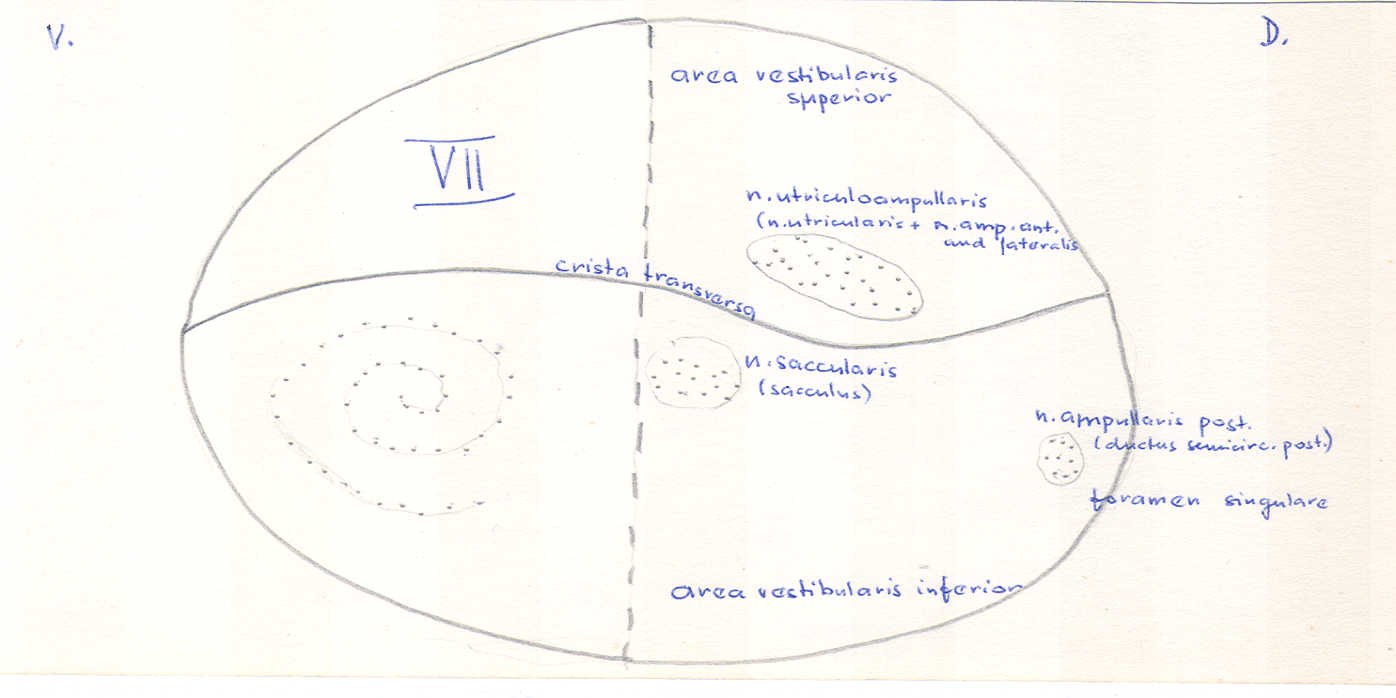 V.
D.
area vestibularis
superior
VII
n. utriculoampullaris
(n. utricularis + n. amp. ant.
and lateralis
crista transversa
n. saccularis
(sacculus)
n. ampullaris post.
(ductus semicirc. post.)
foramen singulare
area vestibularis inferior